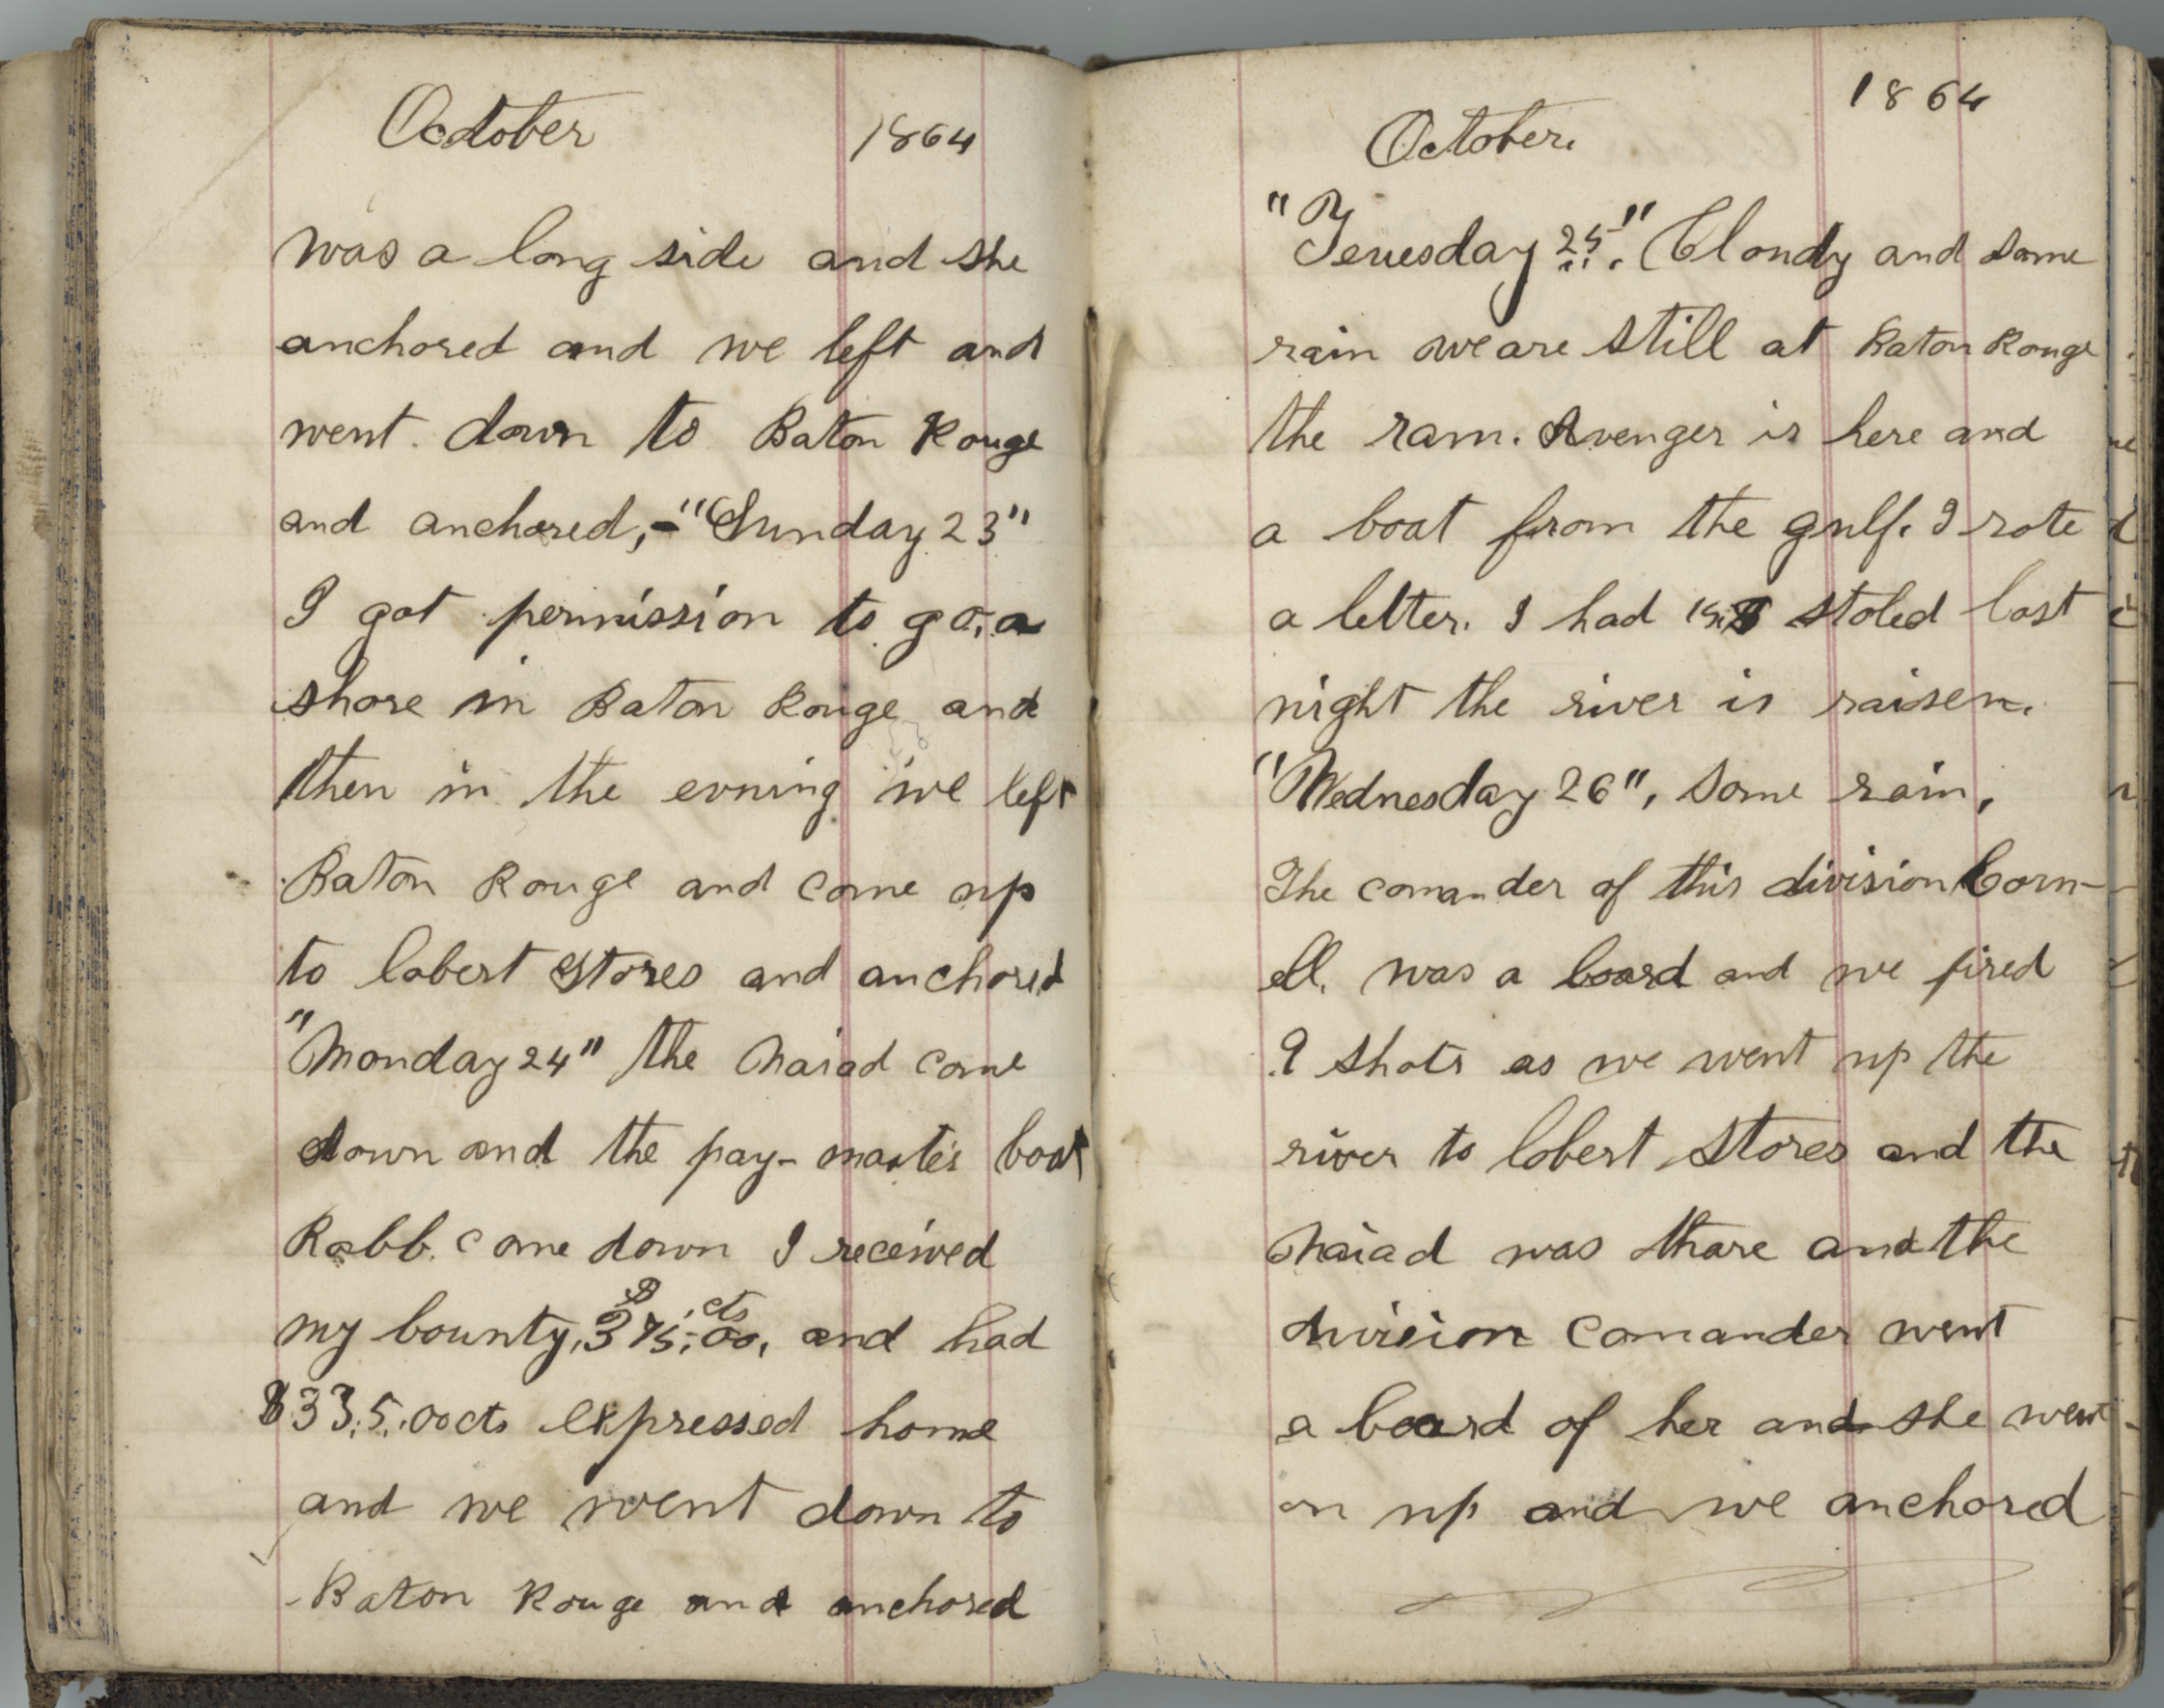 October 1864
was a long side and she
anchored and we left and
went. down to Baton Rouge
and anchored,-"Sunday 23"
I got permission to go, a
shore in Baton Rouge and
then in the evning we left
Baton Rouge and come up
to lobert Stores and anchored
"Monday 24" the Naiad come
down and the pay-master's boat
Rabb. come down I received
my bounty, $375,00,cts and had
$33.5.00cts expressed home
and we went down to
Baton Rouge and anchored
October. 1864
"Teuesday 25". Cloudy and some
rain we are still at Baton Rouge
the ram. Avenger is here and
a boat from the gulf. I rote
a letter. I had stoled last
night the river is raisen.
"Wednesday 26", some rain,
The comander of this division Corn-
ell. was a board and we fired
9 shots as we went up the
river to lobert Stores and the
Naiad was thare and the
division comander went
a board of her and she went
on up and we anchored